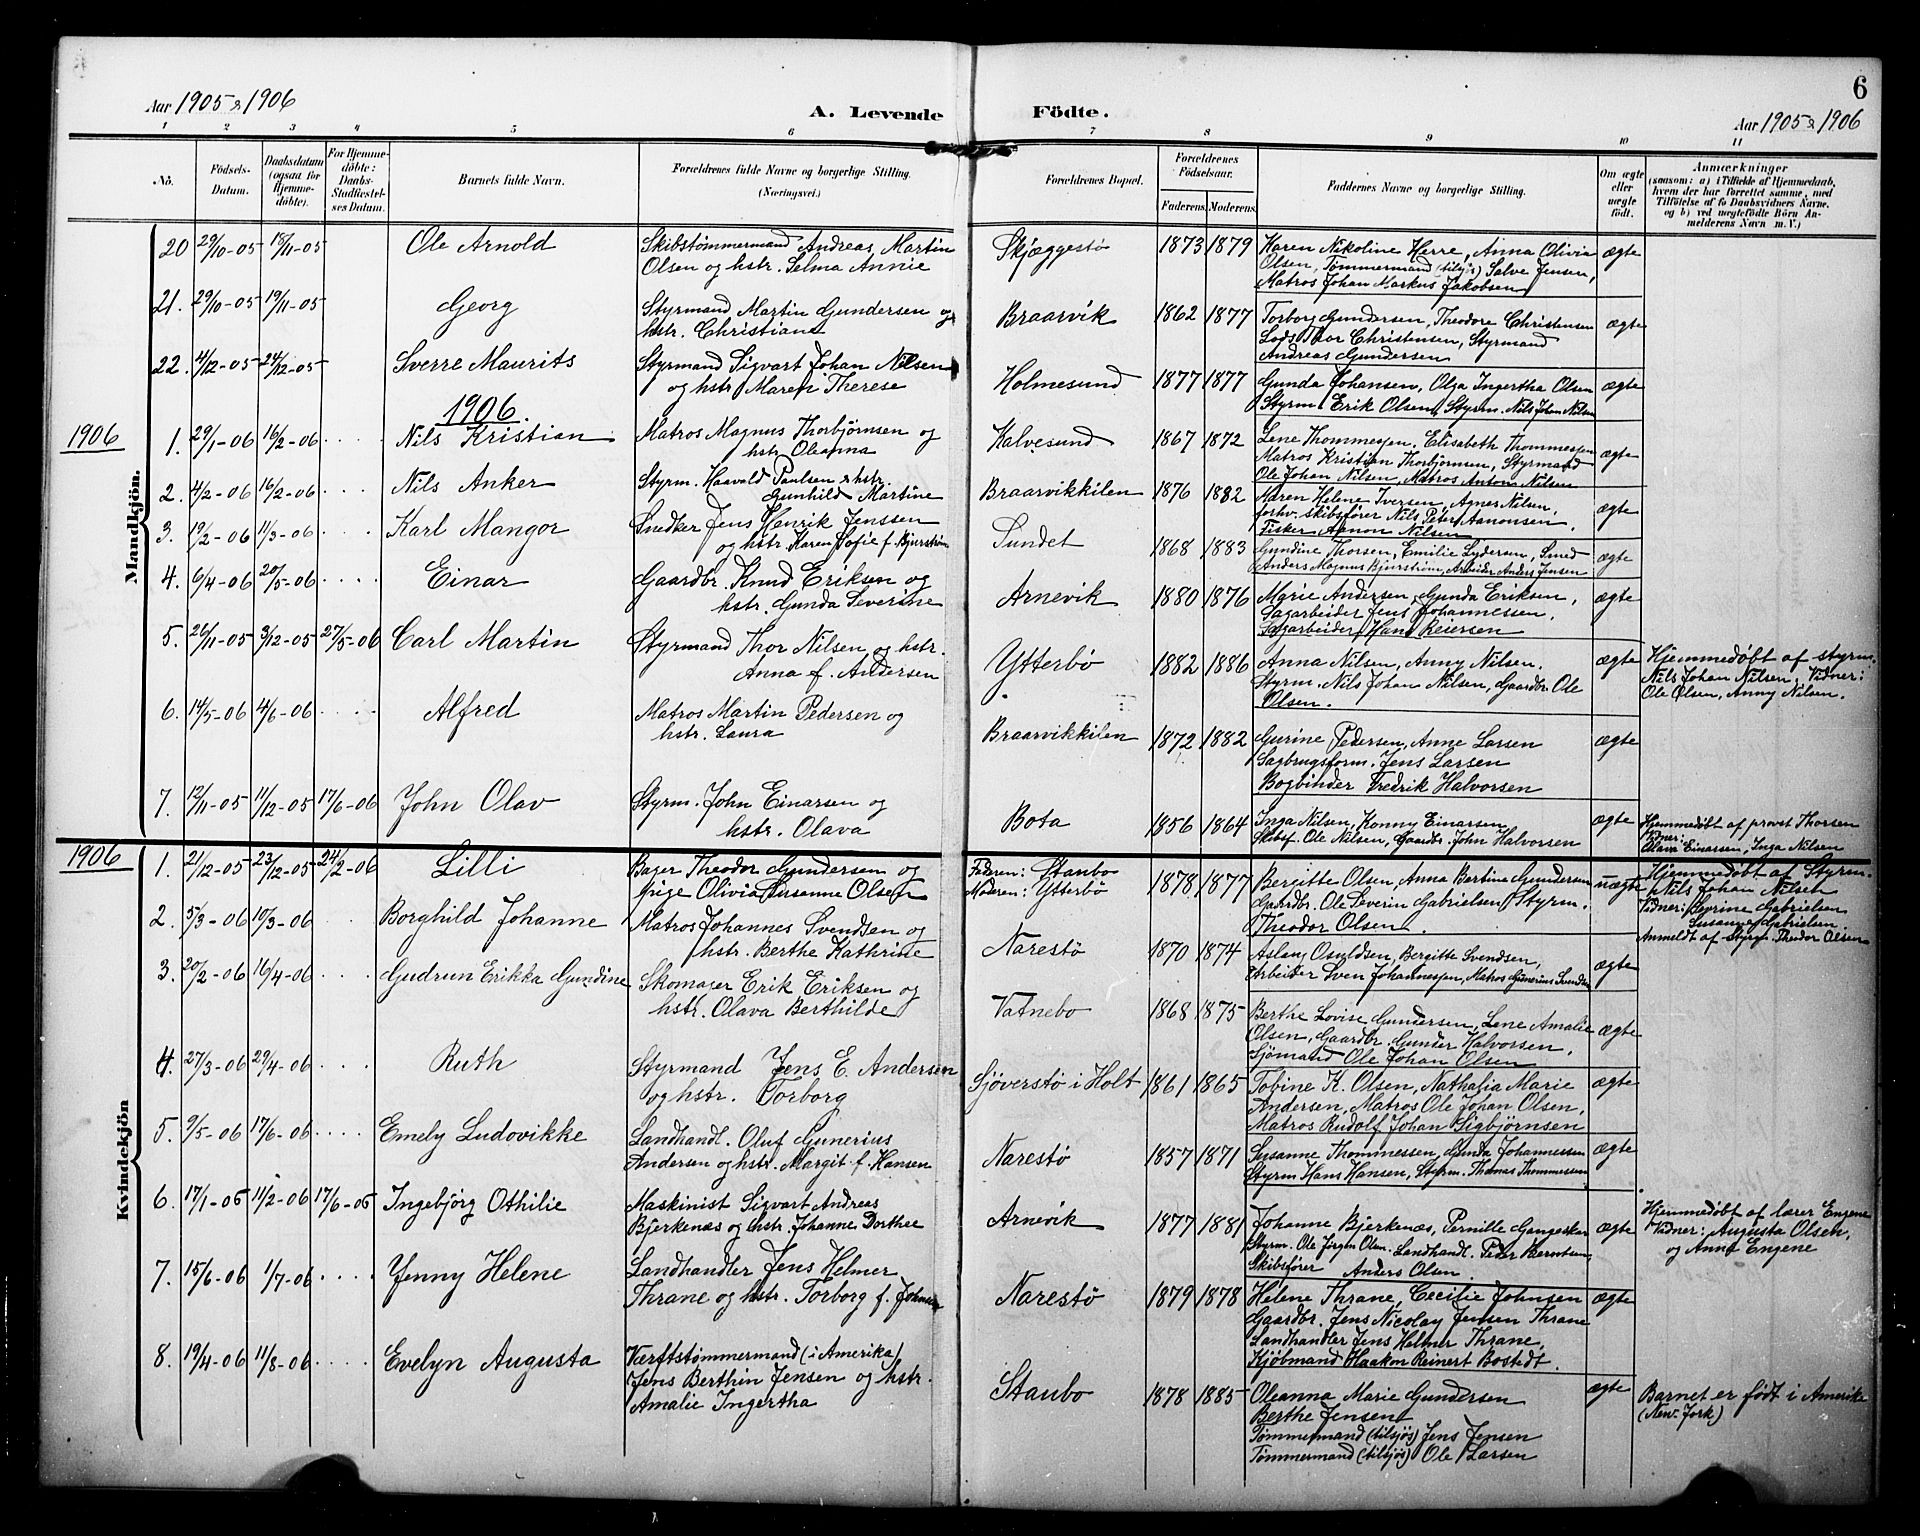 6
Aar 1905 & 1906
A. Levende Födte.
Aar 1905 & 1906
1 2 3 4 5 6 7 8 9 10 11
No.
Födsels-Datum.
Daabsdatum (ogsaa for Hjemmedöbte).
For Hjemmedöbte: Daabs-Stadfæstelses Datum.
Barnets fulde Navn.
Forældrenes fulde Navne og borgerlige Stilling. (Næringsvei.)
Forældrenes Bopæl.
Forældrenes Födselsaar.
Faderens. Moderens.
Faddernes Navne og borgerlige Stilling.
Om ægte eller uægte födt.
Anmærkninger
(saasom: a) i Tilfælde af Hjemmedaab, hvem der har forrettet samme, med Tilföielse af to Daabsvidners Navne, og b) ved uægtefödte Börn Anmelderens Navn m. V.)
Mandkjön.
20 29/10-05 15/11-05 Ole Arnold
Skibstømmermand Andreas Martin
Olsen og hstr. Selma Annie
Skjæggestø 1873 1879
Karen Nikoline Herre, Anna Olivia
Olsen, Tømmermand (tilsjøs) Salve Jensen,
Matros Johan Markus Jakobsen
ægte
21. 29/10-05 19/11-05 Georg
Styrmand Martin Gundersen og
hstr. Christiane
Braarvik 1862 1877
Torborg Gundersen, Theodore Christensen
Lods Thor Christensen, Styrmand
Andreas Gundersen
ægte
22. 4/12-05 24/12-05 Sverre Maurits
Styrmand Sigvart Johan Nilsen
og hstr. Maren Therese
Holmesund 1877 1877
Gunda Johansen, Olga Ingertha Olsen
Styrm. Erik Olsen, Styrm. Nils Johan Nilsen
ægte
1906.
1906
1. 29/1-06 16/2-06 Nils Kristian
Matros Magnus Thorbjørnsen og
hstr. Oleanna
Kalvesund 1867 1872
Lene Thommessen, Elisabeth Thommessen
Matros Kristian Thorbjørnsen, Styrmand
Ole Johan Nilsen, Matros Anton Nilsen
ægte
2. 4/2-06 16/2-06 Nils Anker
Styrm. Haavald Paulsen & hstr.
Gunhild Martine
Braarvikkilen 1876 1882
Maren Helene Iversen, Agnes Nilsen,
forhv. skibsfører Nils Peter Aanonsen,
Fisker Aanon Nilsen
ægte
3. 19/2-06 11/3-06 Karl Mangor
Snedker Jens Henrik Jenssen
og hstr. Karen Sofie f. Bjurstrøm
Sundet 1868 1883
Gundine Thorsen, Emilie Sydersen, Smed
Anders Magnus Bjurstrøm, Arbeider Anders Jensen
ægte
4. 6/4-06 20/5-06 Einar
Gaardbr. Knud Eriksen og
hstr. Gunda Severine
Arnevik 1880 1876
Marie Andersen, Gunda Eriksen,
Sagarbeider Jens Johannessen,
Sagarbeider Hans Reiersen
ægte
5. 26/11-05 3/12-05 27/5-06 Carl Martin
Styrmand Thor Nilsen og hstr.
Anna f. Andersen
Ytterbø 1882 1886
Anna Nilsen, Anny Nilsen.
Styrm. Nils Johan Nilsen, Gaardbr. Ole
Olsen.
ægte
Hjemmedøbt af styrm.
Nils Johan Nilsen, Vidner:
Ole Olsen, Anny Nilsen.
6. 14/5-06 4/6-06 Alfred
Matros Martin Pedersen og
hstr. Laura
Braarvikkilen 1872 1882
Gurine Pedersen, Anne Larsen
Sagbrugsform. Jens Larsen
Bogbinder Fredrik Halvorsen
ægte
7. 12/11-05 11/12-05 17/6-06 John Olav
Styrm. John Einarsen og
hstr. Olava
Bota 1856 1864
Inga Nilsen, Konny Einarsen
Skibsf. Ole Nilsen, Gaardbr. John Halvorsen
ægte
Hjemmedøbt af provst Thorsen
Vidner:
Olava Einarsen, Inga Nilsen
1906
Kvindekjön
1. 21/12-05 23/12-05 24/2-06 Lilli
Bager Theodor Gundersen og
Pige Olivia Susanne Olsen
Faderen: Staubo
Moderen: Ytterbø
1878 1877
Bergitte Olsen, Anna Bertine Gundersen
Gaardbr. Ole Severin Gabrielsen, Styrm.
Theodor Olsen.
uægte
Hjemmedøbt af Styrm.
Nils Johan Nilsen
Vidner: Gyrine Gabrielsen
Susanne Gabrielsen.
Anmeldt af Styrm. Theodor Olsen
2. 5/3-06 10/3-06 Borghild Johanne
Matros Johannes Svendsen og
hstr. Berthe Kathrine
Narestø 1870 1874
Aslaug Osuldsen, Bergitte Svendsen,
Arbeider Sven Johannessen, Matros Gunerius Svendsen
ægte
3. 20/2-06 16/4-06 Gudrun Erikka Gundine
Skomager Erik Eriksen og
hstr. Olava Berthilde
Vatnebo 1868 1875
Berthe Lovise Gundersen, Lene Amalie
Olsen, Gaardbr. Gunder Halvorsen,
Sjømand Ole Johan Olsen
ægte
4. 27/3-06 29/4-06 Ruth
Styrmand Jens E. Andersen
og hstr. Torborg
Sjöverstø i Holt 1861 1865
Tobine K. Olsen, Nathalia Marie
Andersen, Matros Ole Johan Olsen,
Matros Rudolf Johan Sigbjørnsen
ægte
5. 9/5-06 17/6-06 Emely Ludovikke
Landhandl. Oluf Gunerius
Andersen og hstr. Margit f. Hansen
Narestø 1857 1871
Susanne Thommessen, Gunda Johannessen
Styrm Hans Hansen, Styrm. Thomas Thommessen
ægte
6. 17/1-06 11/2-06 17/6-06 Ingebjörg Othilie
Maskinist Sigvart Andreas
Bjerkenæs og hstr. Johanne Dorthee
Arnevik 1877 1881
Johanne Bjerkenæs, Pernille Gangeskar
Styrm. Ole Jørgen Olsen. Landhandl. Peder Berntsen,
Skibsfører Anders Olsen.
ægte
Hjemmedøbt af lærer Engene
Vidner: Augusta Olsen,
og Anna Engene
7. 15/6-06 1/7-06 Jenny Helene
Landhandler Jens Helmer
Thrane og hstr. Torborg f. Johnsen
Narestø 1879 1878
Helene Thrane, Cecilie Johnsen
Gaardbr. Jens Nicolay Jensen Thrane
Landhandler Jens Helmer Thrane,
Kjöbmand Haakon Reinert Bostedt.
ægte
8. 19/4-06 11/8-06 Evelyn Augusta
Værftstømmermand (i Amerika)
Jens Berthin Jensen og hstr.
Amalie Ingertha
Staubo 1878 1885
Oleanna Marie Gundersen
Berthe Jensen
Tømmermand (tilsjøs) Jens Jensen
Tømmermand (tilsjøs) Ole Larsen
ægte
Barnet er født i Amerika
(New-York)